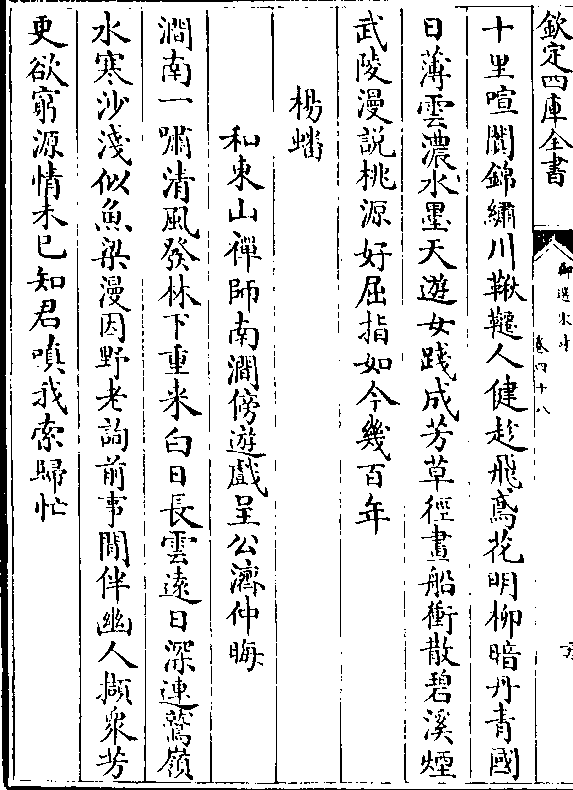 欽定四庫全書
御選宋詩
卷四十八
十里喧闐錦繡川鞦韆人健趁飛鳶花明柳暗丹青國
日薄雲濃水墨天遊女踐成芳草徑畫船衝散碧溪煙
武陵漫說桃源好屈指如今幾百年
楊蟠
和東山禪師南澗傍遊戲呈公濟仲晦
澗南一嘯清風發林下重来白日長雲遠日深連鷲嶺
水寒沙淺似魚梁漫因野老詢前事閒伴幽人擷衆芳
更欲窮源情未已知君嗔我索歸忙